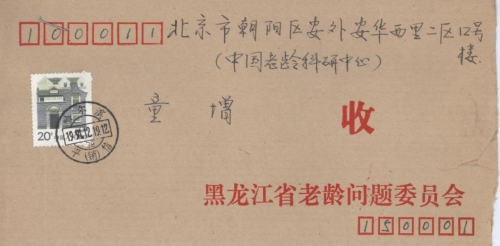 100011 北京市朝阳区安外安华西里二区12号楼
(中国老龄科研中心)
20分
童 增 收
黑龙江省老龄问题委员会
150001